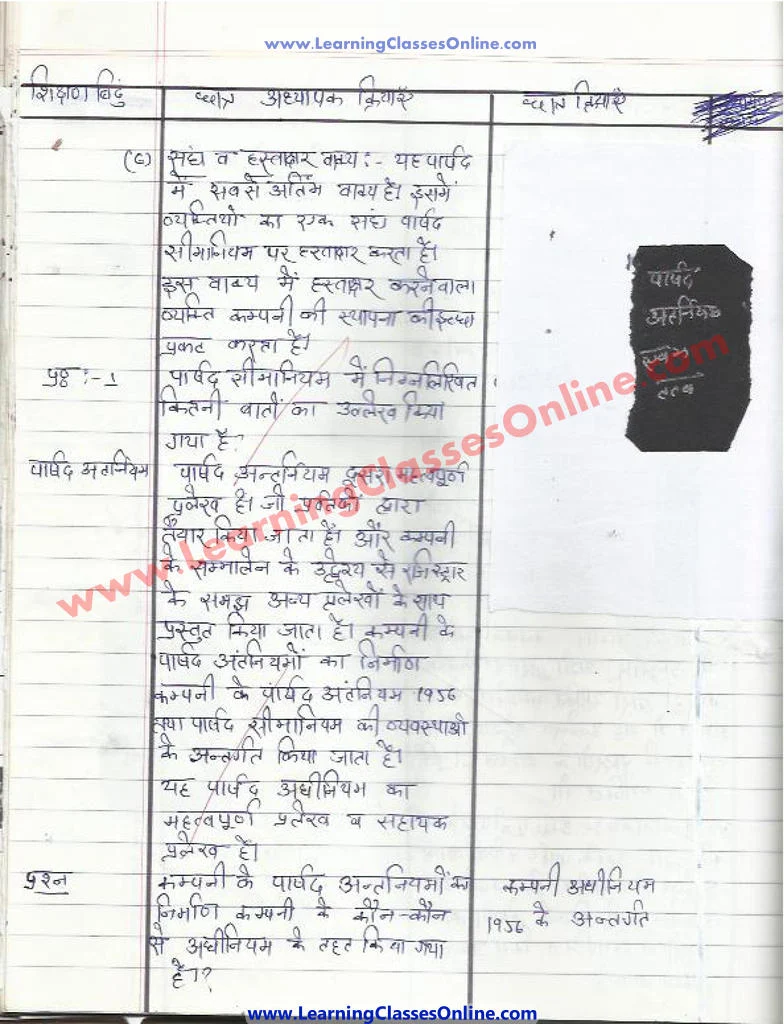 www.LearningClassesOnline.com
शिक्षण बिंदु छात्र अध्यापक क्रियाएं छात्र क्रियाएं
(6) संघ व हस्ताक्षर वाक्य :- यह पार्षद
में सबसे अंतिम वाक्य है। इसमें
व्यक्तियों का एक संघ पार्षद
सीमानियम पर हस्ताक्षर करता है।
इस वाक्य में हस्ताक्षर करने वाला
व्यक्ति कम्पनी की स्थापना की इच्छा
प्रकट करता है।
प्रश्न :- 1 पार्षद सीमानियम में निम्नलिखित
कितनी बातों का उल्लेख किया
गया है?
पार्षद
अंतर्नियम
पार्षद अंतर्नियम पार्षद अन्तर्नियम दूसरा महत्वपूर्ण
प्रलेख है। जो प्रवर्तकों द्वारा
तैयार किया जाता है। और कम्पनी
के सम्मालेन के उद्देश्य से रजिस्ट्रार
के समक्ष अन्य प्रलेखों के साथ
प्रस्तुत किया जाता है। कम्पनी के
पार्षद अंतनियमों का निर्माण
कम्पनी के पार्षद अंतनियम 1956
तथा पार्षद सीमानियम की व्यवस्थाओं
के अन्तर्गत किया जाता है।
यह पार्षद अधीनियम का
महत्वपूर्ण प्रलेख व सहायक
प्रलेख है।
प्रश्न कम्पनी के पार्षद अन्तनियमों का कम्पनी अधीनियम
निर्माण कम्पनी के कौन-कौन 1956 के अन्तर्गत
से अधीनियम के तहत किया गया
है।?
www.LearningClassesOnline.com
www.LearningClassesOnline.com